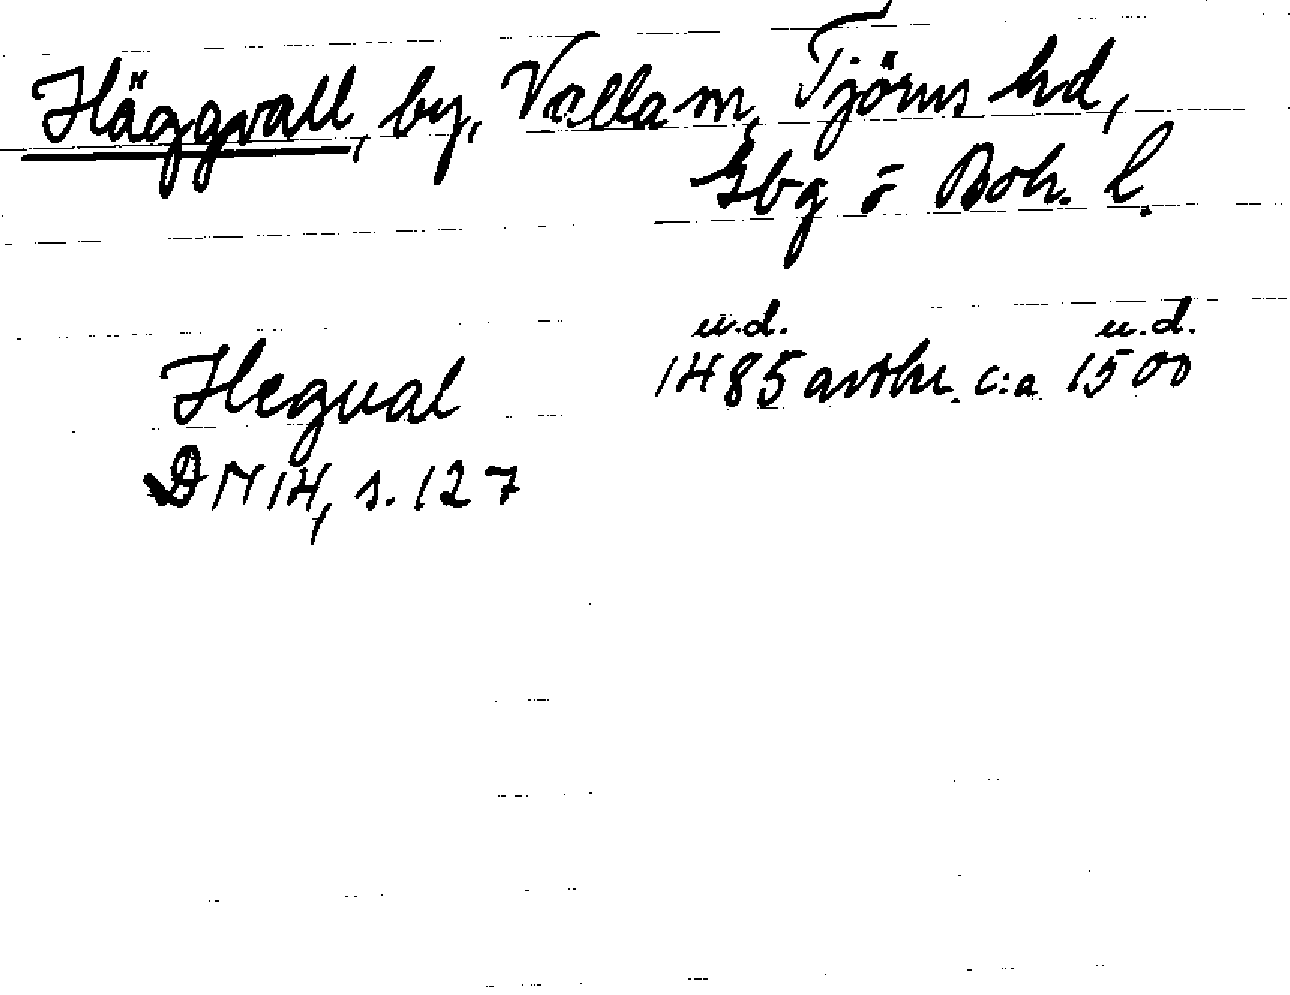 Häggvall, by, Valla sn, Tjörns hd,
Gbg o Boh. l.
u.d. u.d.
Hegual 1485 avskr. c:a 1500
DN 14, s. 127